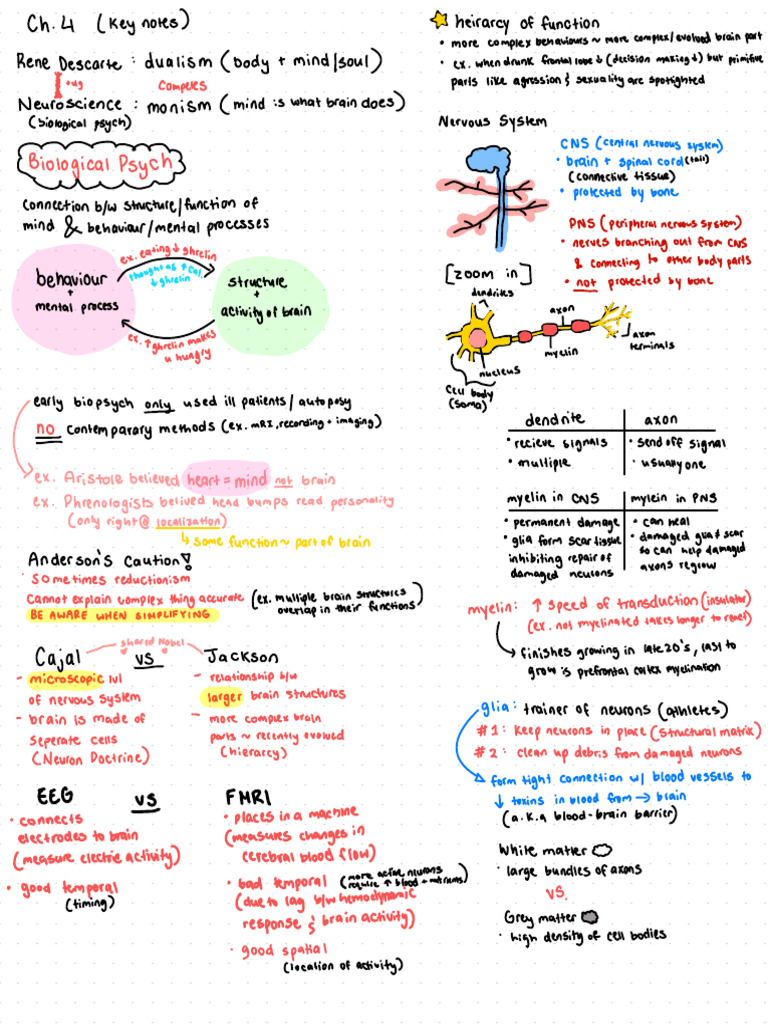 Ch. 4 (Key notes)
Rene Descarte : dualism (body + mind/soul)
Competes
Neuroscience : monism (mind is what brain does)
(biological psych)
Biological Psych
connection b/w structure/function of
mind & behaviour/mental processes
ex. eating ↓ ghrelin
thought as ↑ cal.
↓ ghrelin
behaviour
+
mental process
structure
+
activity of brain
ex. ↑ ghrelin makes
u hungry
early biopsych only used ill patients/autoposy
no contemparary methods (ex. MRI, recording + imaging)
ex. Aristole believed heart = mind not brain
ex. Phrenologists belived head bumps read personality
(only right @ localization)
↳ some function ~ part of brain
Anderson's Caution!
• sometimes reductionism
Cannot explain complex thing accurate (ex. multiple brain structures
overlap in their functions)
BE AWARE WHEN SIMPLIFYING
shared Nobel
Cajal vs Jackson
- microscopic lvl
of nervous system
- brain is made of
seperate cells
(Neuron Doctrine)
- relationship b/w
larger brain structures
- more complex brain
parts ~ recently evolved
(hierarcy)
EEG vs FMRI
• connects
electrodes to brain
(measure electric activity)
• good temporal
(timing)
• places in a machine
(measures changes in
cerebral blood flow)
• bad temporal (more active neurons
require ↑ blood + nutrients)
(due to lag b/w hemodynamic
response & brain activity)
• good spatial
(location of activity)
heirarcy of function
• more complex behaviours ~ more complex/evolved brain part
• ex. when drunk frontal lobe ↓ (decision making ↓) but primitive
parts like agression & sexuality are spotighted
Nervous System
CNS (central nervous system)
• brain + spinal cord (tail)
(connective tissue)
• protected by bone
PNS (peripheral nervous system)
• nerves branching out from CNS
& connecting to other body parts
• not protected by bone
[zoom in]
dendrites
axon
myelin
axon
terminals
nucleus
Cell body
(soma)
dendrite axon
• recieve signals • send off signal
• multiple • usually one
myelin in CNS mylein in PNS
• permanent damage
• glia form scar tissue
inhibiting repair of
damaged neurons
• can heal
• damaged glia & scar
so can help damaged
axons regrow
myelin: ↑ speed of transduction (insulator)
(ex. not myelinated takes longer to relief)
finishes growing in late 20's, last to
grow is prefrontal cortex myelination
glia: trainer of neurons (athletes)
#1: keep neurons in place (structural matrix)
#2: clean up debris from damaged neurons
form tight connection w/ blood vessels to
↓ toxins in blood from → brain
(a.k.a blood-brain barrier)
White matter
• large bundles of axons
VS.
Grey matter
• high density of cell bodies